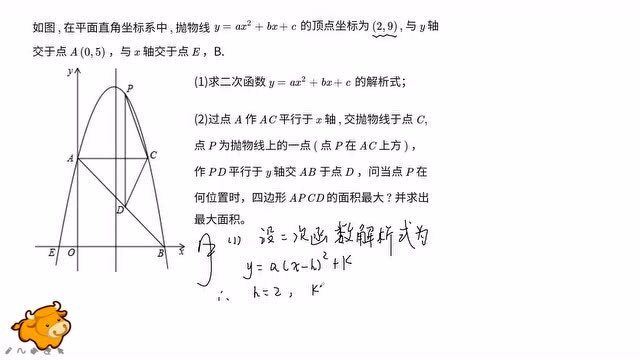 如图,在平面直角坐标系中,抛物线 y = ax² + bx + c 的顶点坐标为 (2,9),与 y 轴
交于点 A(0,5),与 x 轴交于点 E,B.
(1)求二次函数 y = ax² + bx + c 的解析式;
(2)过点 A 作 AC 平行于 x 轴,交抛物线于点 C,
点 P 为抛物线上的一点(点 P 在 AC 上方),
作 PD 平行于 y 轴交 AB 于点 D,问当点 P 在
何位置时,四边形 APCD 的面积最大?并求出
最大面积。
y
P
A
C
D
E
O
B
x
(1) 设二次函数解析式为
y = a(x-h)² + K
∴ h = 2, K